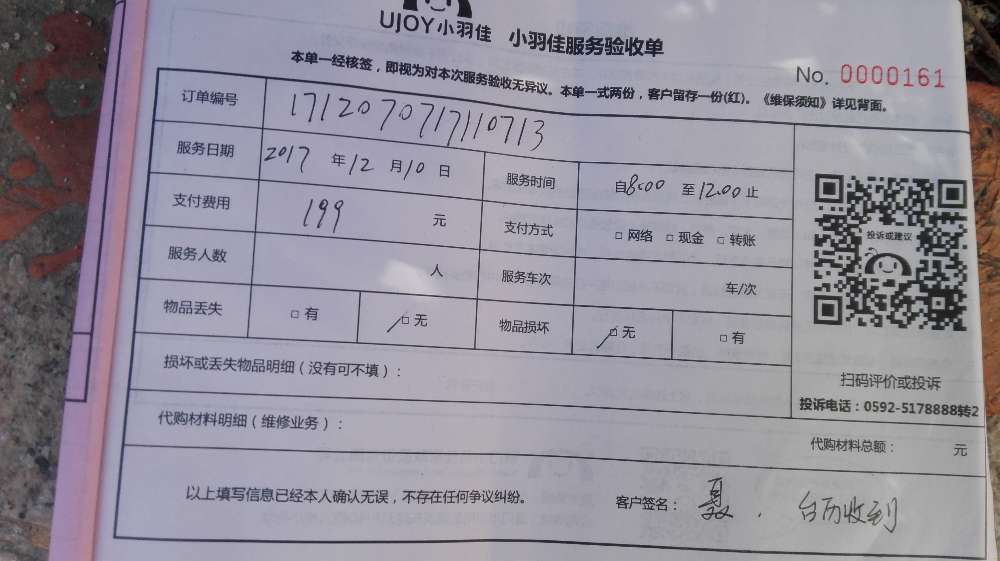 UJOY小羽佳 小羽佳服务验收单
No. 0000161
本单一经核签，即视为对本次服务验收无异议。本单一式两份，客户留存一份(红)。《维保须知》详见背面。
订单编号 1712070717110713
服务日期 2017 年 12 月 10 日 服务时间 自8:00 至12:00止
支付费用 199 元 支付方式 □ 网络 □ 现金 □ 转账
投诉或建议
服务人数 人 服务车次 车/次
物品丢失 □ 有 □ 无 物品损坏 □ 无 □ 有
损坏或丢失物品明细（没有可不填）：
扫码评价或投诉
投诉电话：0592-5178888转2
代购材料明细（维修业务）：
代购材料总额： 元
以上填写信息已经本人确认无误，不存在任何争议纠纷。
客户签名： 聂 . 台历收到